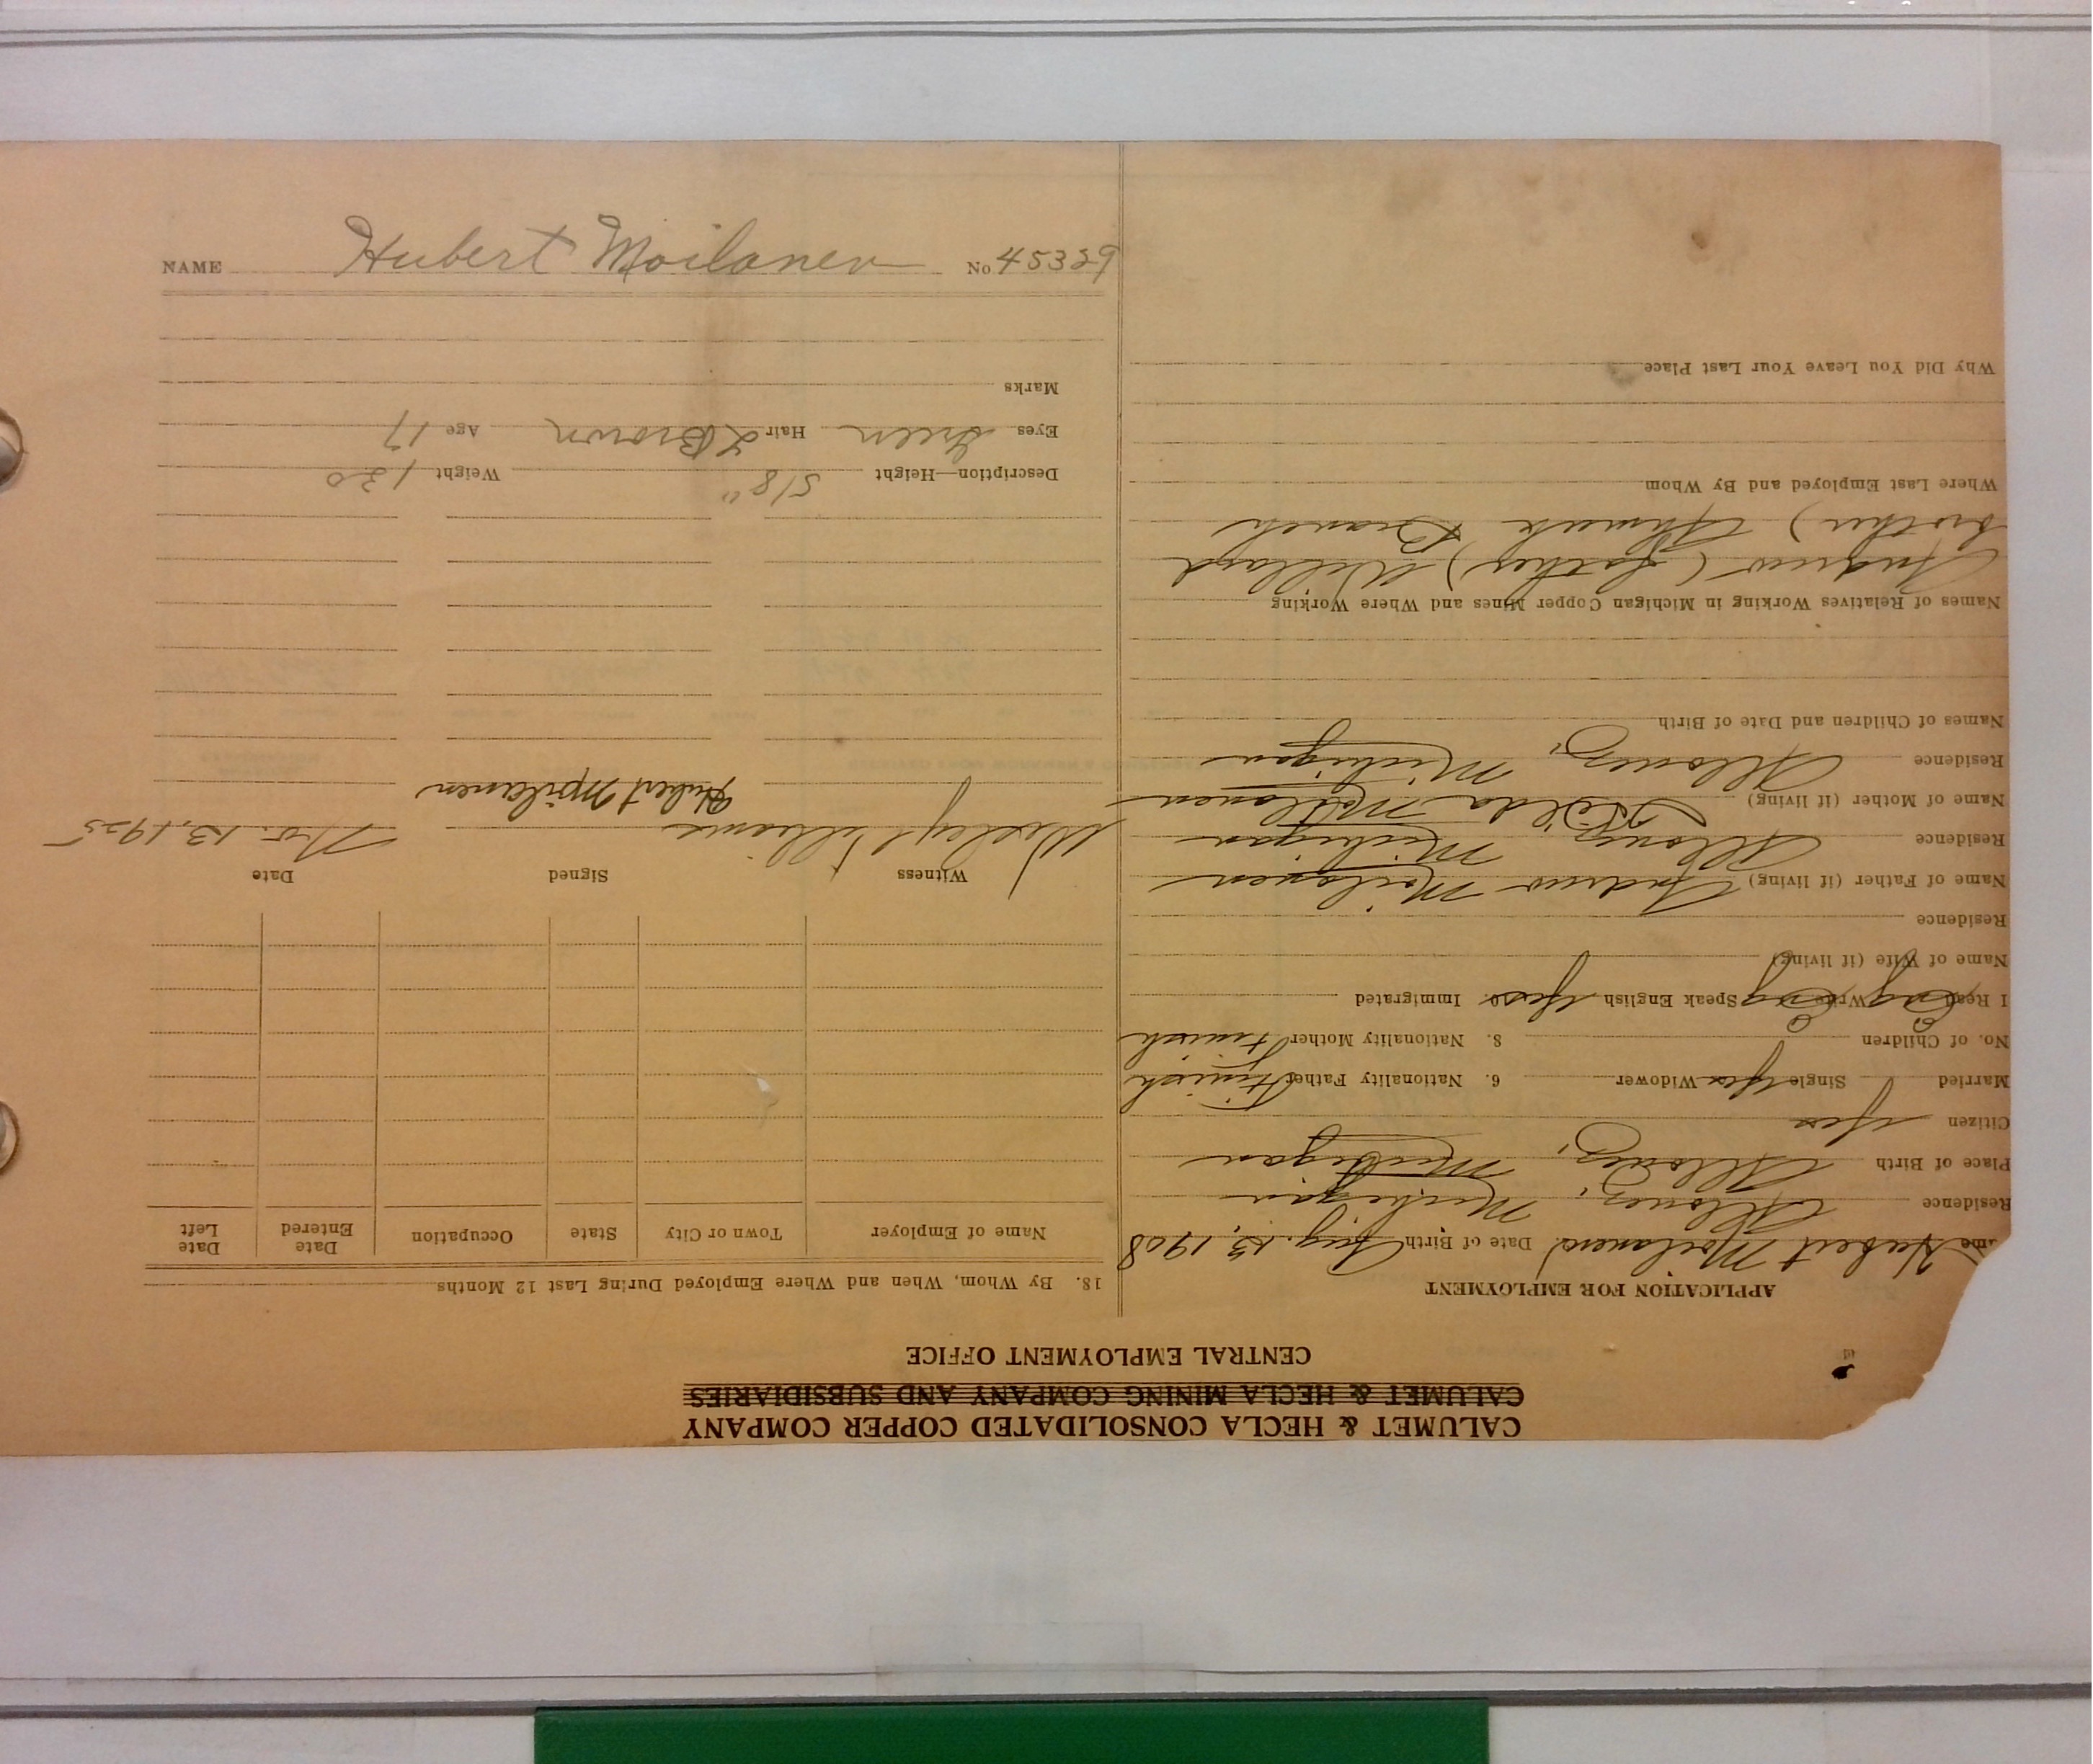 CALUMET & HECLA CONSOLIDATED COPPER COMPANY
CALUMET & HECLA MINING COMPANY AND SUBSIDIARIES
CENTRAL EMPLOYMENT OFFICE
APPLICATION FOR EMPLOYMENT
me Hubert Moilanen Date of Birth Aug. 13, 1908
Residence Allouez, Michigan
Place of Birth Allouez, Michigan
Citizen Yes
Married Single Yes Widower 6. Nationality Father Finish
No. of Children 8. Nationality Mother Finish
I Read Eng Write Eng Speak English Yes Immigrated
Name of Wife (if living)
Residence
Name of Father (if living) Andrew Moilanen
Residence Allouez, Michigan
Name of Mother (if living) Hilda Moilanen
Residence Allouez, Michigan
Names of Children and Date of Birth
Names of Relatives Working in Michigan Copper Mines and Where Working
Andrew (father) Willard
brother) Ahmeek Branch
Where Last Employed and By Whom
Why Did You Leave Your Last Place
18. By Whom, When and Where Employed During Last 12 Months
Name of Employer Town or City State Occupation Date Entered Date Left
Witness Signed Date
Wesley Williams Hubert Moilanen Nov. 13, 1925
Description—Height 5/8" Weight 130
Eyes Green Hair L Brown Age 17
Marks
NAME Hubert Moilanen No 45329